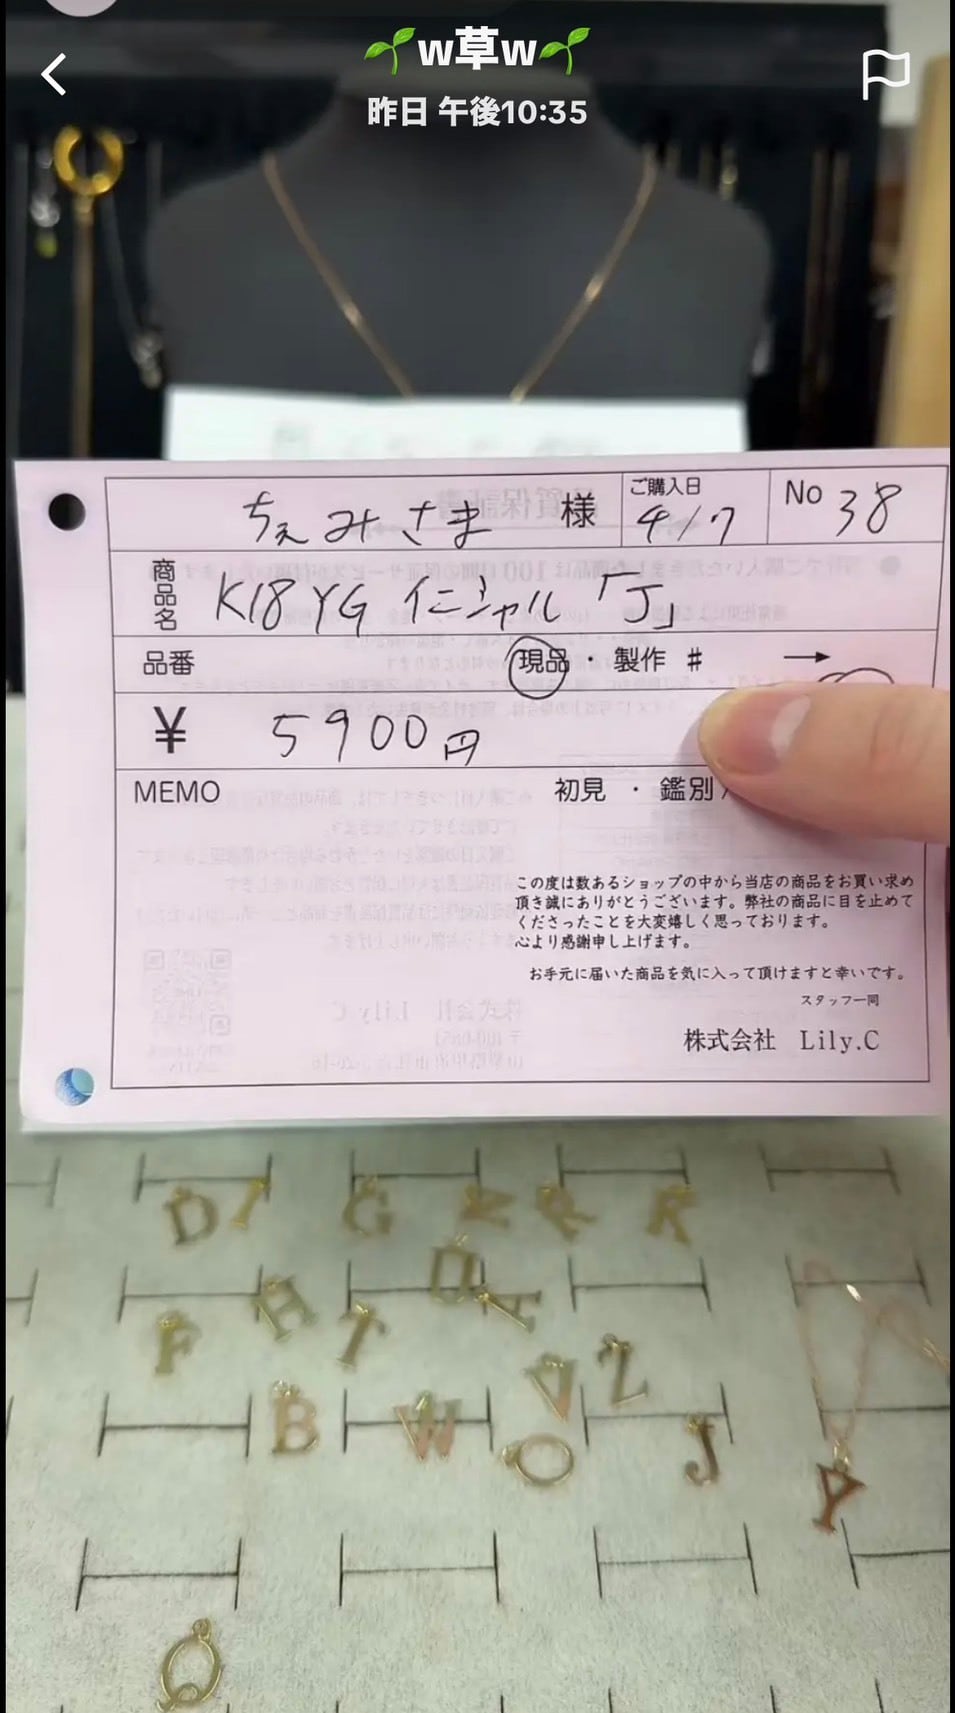 🌱w草w🌱
昨日 午後10:35
ちぇみさま 様
ご購入日
4/7
No 38
商品名
K18 YG イニシャル「J」
品番
現品 ・ 製作 ♯ →
¥ 5900円
MEMO
初見 ・ 鑑別
この度は数あるショップの中から当店の商品をお買い求め
頂き誠にありがとうございます。弊社の商品に目を止めて
くださったことを大変嬉しく思っております。
心より感謝申し上げます。
お手元に届いた商品を気に入って頂けますと幸いです。
スタッフ一同
株式会社 Lily.C
D I G K R R
F H T
B W V Z
O J Y
Q